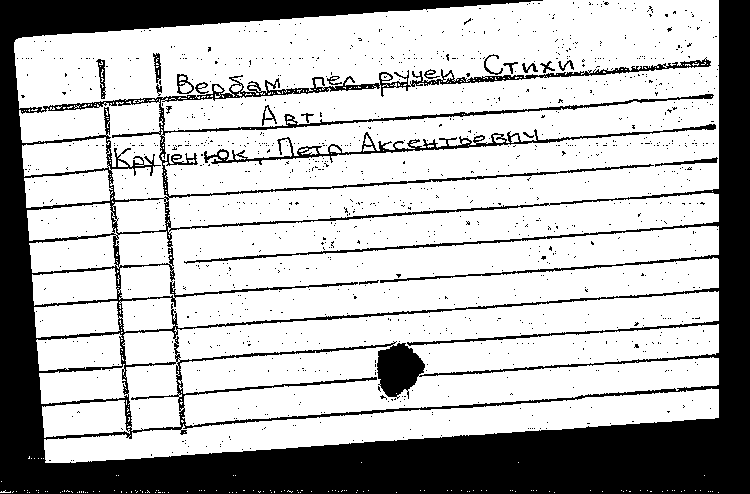 Вербам пел ручей. Стихи.
Авт:
Крученюк, Петр Аксентьевич